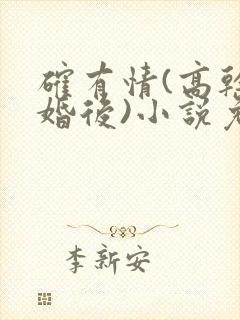 確有情(高幹
婚後)小說
李新安